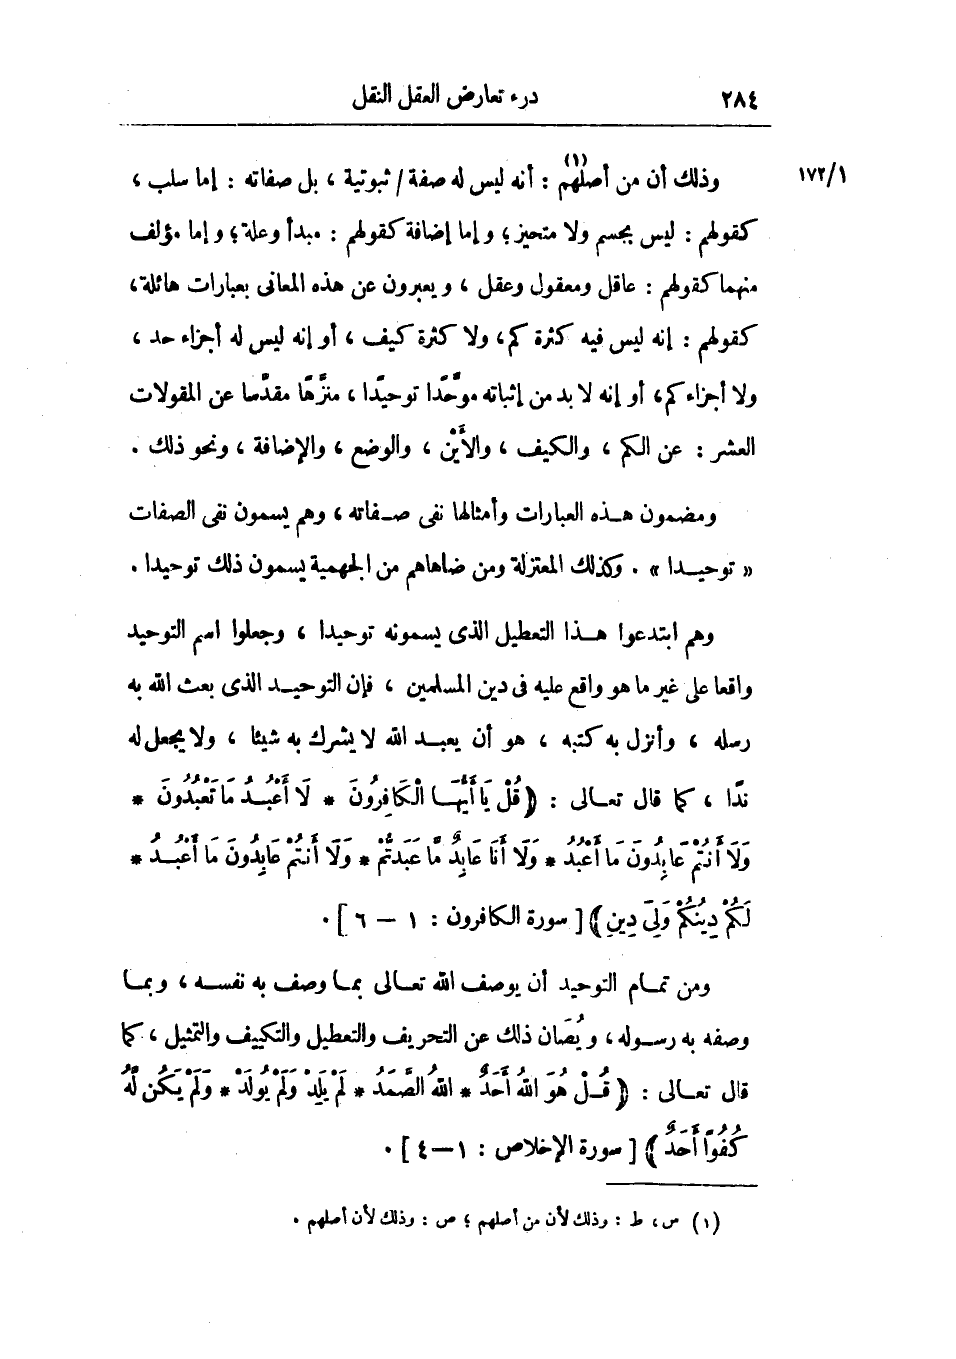 ٢٨٤ درء تعارض العقل النقل
١٧٢/١ وذلك أن من أصلهم(١) : أنه ليس له صفة / ثبوتية ، بل صفاته : إما سلب ،
كقولهم : ليس بجسم ولا متحيز ؛ وإما إضافة كقولهم : مبدأ وعلة ؛ وإما مؤلف
منهما كقولهم : عاقل ومعقول وعقل ، ويعبرون عن هذه المعانى بعبارات هائلة ،
كقولهم : إنه ليس فيه كثرة كم ، ولا كثرة كيف ، أو إنه ليس له أجزاء حد ،
ولا أجزاء كم ، أو إنه لا بد من إثباته موحَّدا توحيدًا ، منزَّهًا مقدَّسا عن المقولات
العشر : عن الكم ، والكيف ، والأَيْن ، والوضع ، والإضافة ، ونحو ذلك .
ومضمون هـذه العبارات وأمثالها نفى صـفاته ، وهم يسمون نفى الصفات
« توحيـدا » . وكذلك المعتزلة ومن ضاهاهم من الجهمية يسمون ذلك توحيدا .
وهم ابتدعوا هـذا التعطيل الذى يسمونه توحيدا ، وجعلوا اسم التوحيد
واقعا على غير ما هو واقع عليه فى دين المسلمين ، فإن التوحيـد الذى بعث الله به
رسله ، وأنزل به كتبه ، هو أن يعبـد الله لا يشرك به شيئا ، ولا يجعل له
ندًّا ، كما قال تعـالى : ﴿ قُلْ يَا أَيُّهَـا الْكَافِرُونَ * لَا أَعْبُـدُ مَا تَعْبُدُونَ *
وَلَا أَنتُمْ عَابِدُونَ مَا أَعْبُدُ * وَلَا أَنَا عَابِدٌ مَّا عَبَدتُّمْ * وَلَا أَنتُمْ عَابِدُونَ مَا أَعْبُـدُ *
لَكُمْ دِينُكُمْ وَلِيَ دِينِ ﴾ [ سورة الكافرون : ١ – ٦ ] .
ومن تمـام التوحيد أن يوصف الله تعـالى بمـا وصف به نفسـه ، وبمـا
وصفه به رسـوله ، ويُصَان ذلك عن التحريف والتعطيل والتكييف والتمثيل ، كما
قال تعـالى : ﴿ قُـلْ هُوَ اللهُ أَحَدٌ * اللهُ الصَّمَدُ * لَمْ يَلِدْ وَلَمْ يُولَدْ * وَلَمْ يَكُن لَّهُ
كُفُوًا أَحَدٌ ﴾ [ سورة الإخلاص : ١ – ٤ ] .
(١) س ، ط : وذلك لأن من أصلهم ؛ ص : وذلك لأن أصلهم .